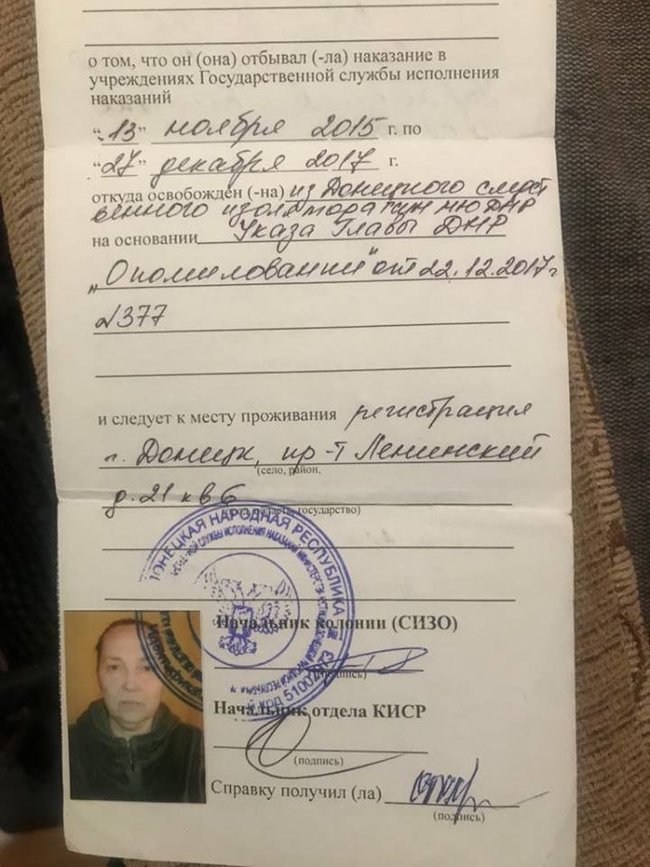 о том, что он (она) отбывал (-ла) наказание в
учреждениях Государственной службы исполнения
наказаний
"13" ноября 2015 г. по
"27" декабря 2017 г.
откуда освобожден (-на) из Донецкого следст
венного изолятора ГСИН МЮ ДНР
на основании Указа Главы ДНР
„О помиловании" от 22.12.2017 г
№377
и следует к месту проживания регистрация
г. Донецк, пр-т Ленинский
(село, район,
д. 21 кв 6
государство)
ДОНЕЦКАЯ НАРОДНАЯ РЕСПУБЛИКА
СЛУЖБЫ ИСПОЛНЕНИЯ НАКАЗАНИЙ
Начальник колонии (СИЗО)
(подпись)
Начальник отдела КИСР
(подпись)
Справку получил (ла)
(подпись)